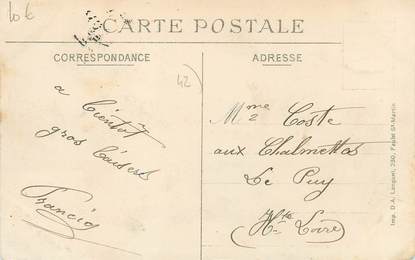 106
CARTE POSTALE
CORRESPONDANCE
ADRESSE
42
à bientôt
gros baisers
Francis
Mme Coste
aux Chalmettes
Le Puy
Hte Loire
Imp. D.A. Longuet, 250, Faubg St-Martin